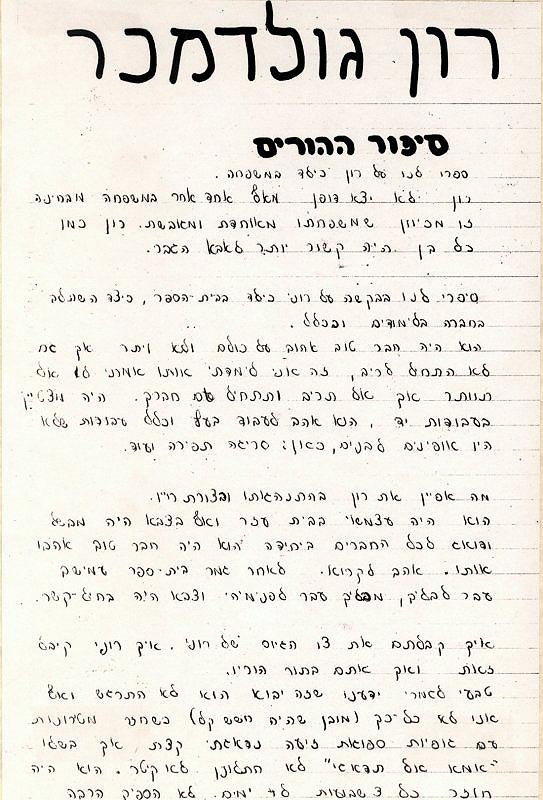 רון גולדמכר
סיפור ההורים
ספרי לנו על רון כילד במשפחה.
רון לא יצא דופן מאף אחד אחר במשפחה מבחינה
זו מכיוון שמשפחתנו מאוחדת ומאובשת. רון כמו
כל בן היה קשור יותר לאבא הגבר.
סיפרי לנו בבקשה על רוני כילד בבית-הספר, כיצד השתלב
בחברה בלימודים ובכלל.
הוא היה חבר טוב אהוב על כולם ולא ויתר אך גם
לא התחיל לריב, זה אני לימדתי אותו אמרתי לו אל
תוותר אך אל תריב ותתחיל עם חברך. היה מצטיין
בעבודות יד, הוא אהב לעבוד בעץ וכלל עבודות שלא
היו אופיניים לבנים, כגון: סריגה תפירה ועוד.
מה אפיין את רון בהתנהגותו ובצורת חייו.
הוא היה עצמאי בבית עזר ואף בצבא היה מבשל
ודואג לכל החברים ביחידה הוא היה חבר טוב אהבו
אותו. אהב לקרוא. לאחר גמר בית-ספר עממי
עבר לפנימיה וצבא היה בחיל-קשר.
איך קבלתם את צו הגיוס של רוני. איך רוני קיבל
זאת ואיך אתם בתור הוריו.
טבעי לגמרי ידענו שזה יבוא הוא לא התרגש ואף
אנו לא כל-כך (מובן שהיה חשש קל) כשחזר מטירונות
עם גופיות ספוגות זיעה נדאגתי קצת אך בשבילו
"אמא אל תדאגי" לא התלונן לא קיטר. הוא היה
חוזר כל שבועות ימים. לא הספיק הרבה